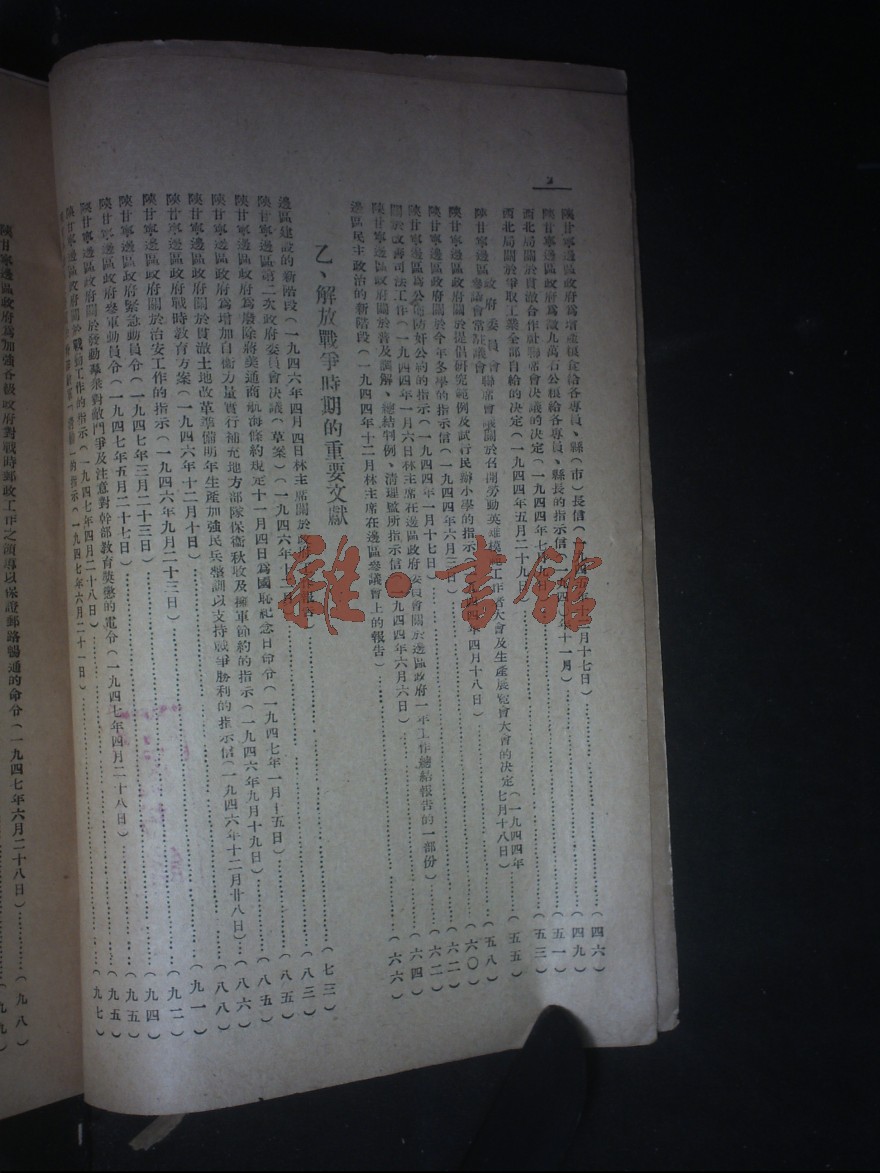 2
陝甘寧邊區政府爲增產糧食給各專員、縣(市)長信(一九四 年十 月十七日)………(四六)
陝甘寧邊區政府爲徵九萬石公糧給各專員、縣長的指示信(一九四 年十一月)………(四九)
西北局關於貫澈合作社聯席會決議的決定(一九四四年七月 )………(五一)
西北局關於爭取工業全部自給的決定(一九四四年五月二十九日)………(五三)
陝甘寧邊區政府委員會 參議會常駐議會聯席會議關於召開勞動英雄模範工作者大會及生產展覽會大會的決定(一九四四年七月十八日)………(五五)
陝甘寧邊區政府關於提倡研究範例及試行民辦小學的指示 (一九四四年四月十八日)………(五八)
陝甘寧邊區政府關於今年冬學的指示信(一九四四年 月三日)………(六〇)
陝甘寧邊區爲公佈防奸公約的指示(一九四四年一月十七日)………(六二)
關於改善司法工作(一九四四年一月六日林主席在邊區政府委員會關於邊區政府一年工作總結報告的一部份)………(六二)
陝甘寧邊區政府關於普及調解、總結判例、清理監所指示信(一九四四年六月六日)………(六四)
邊區民主政治的新階段(一九四四年十二月林主席在邊區參議會上的報告)………(六六)
乙、解放戰爭時期的重要文獻
邊區建設的新階段(一九四六年四月四日林主席關於政府工作報告)………(七三)
陝甘寧邊區第二次政府委員會決議(草案)(一九四六年十二月 )………(八三)
陝甘寧邊區政府爲廢除蔣美通商航海條約規定十一月四日爲國恥紀念日命令(一九四七年一月十五日)………(八五)
陝甘寧邊區政府爲增加自衞力量實行補充地方部隊保衞秋收及擁軍節約的指示(一九四六年九月十九日)………(八五)
陝甘寧邊區政府關於貫澈土地改革準備明年生產加強民兵整訓以支持戰爭勝利的指示信(一九四六年十二月廿八日)………(八六)
陝甘寧邊區政府戰時教育方案(一九四六年十二月十日)………(八八)
陝甘寧邊區政府關於治安工作的指示(一九四六年九月二十三日)………(九一)
陝甘寧邊區政府緊急動員令(一九四七年三月二十三日)………(九二)
陝甘寧邊區政府參軍動員令(一九四七年五月二十七日)………(九四)
陝甘寧邊區政府關於發動羣衆對敵鬥爭及注意對幹部教育獎懲的電令(一九四七年四月二十八日)………(九五)
陝甘寧邊區政府關於戰勤工作的指示(一九四七年四月二十八日)………(九五)
的指示(一九四七年六月二十一日)………(九七)
陝甘寧邊區政府爲加強各級政府對戰時郵政工作之領導以保證郵路暢通的命令(一九四七年六月二十八日)………(九八)
雜·書館